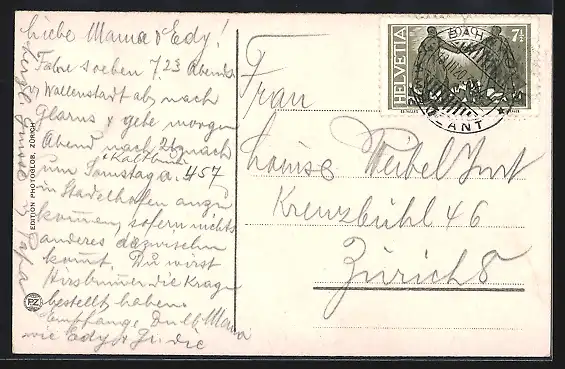 Liebe Mama & Edy!
Fahre soeben 7.23 Abends
v/ Wallenstadt ab, nach
Glarus & gehe morgen
Abend nach
& Kaltbrunn
um Samstag a. 457
in Stadelhofen anzu
kommen, sofern nichts
anderes dazwischen
kommt. Du wirst
die Kragen
bestellt haben.
Empfange, Du lb. Mama
wie Edy &
Papa
EDITION PHOTOGLOB, ZÜRICH
PZ
HELVETIA
7½
AMBULANT
Frau
Louise Weibel
Kreuzbühl 46
Zürich 8